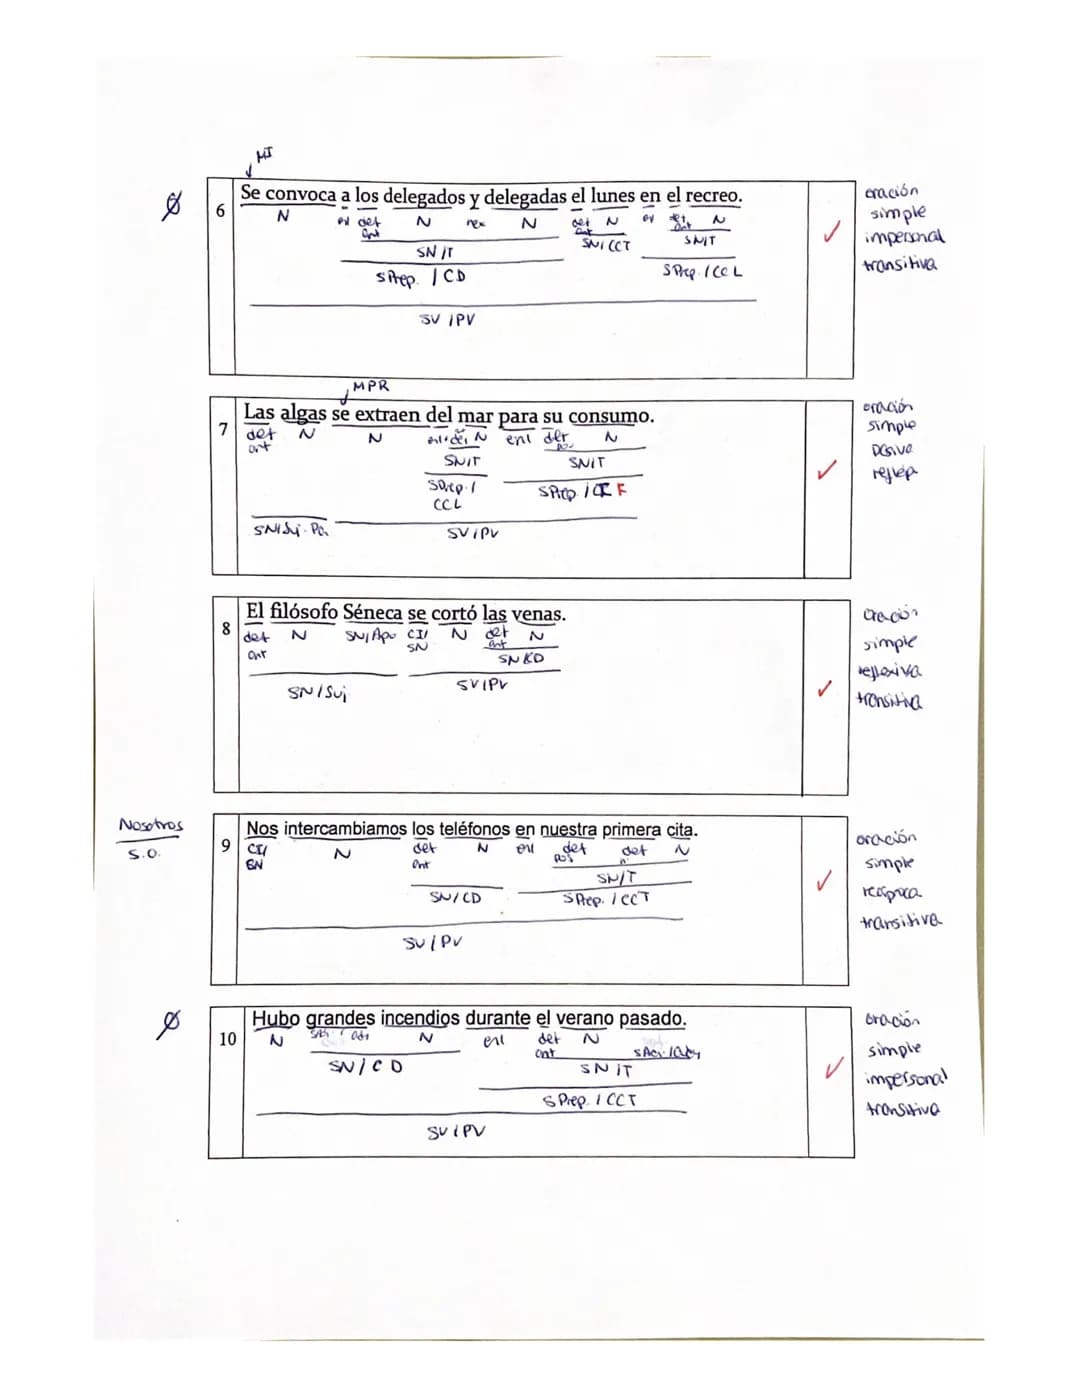 MI
Ø
6
Se convoca a los delegados y delegadas el lunes en el recreo.
N det N nex N det N det N
art art art
SN/T SN/CCT SN/T
SPrep. / CD SPrep. / CCL
SV / PV
oración
simple
impersonal
transitiva
MPR
7
Las algas se extraen del mar para su consumo.
det N N enl+det N enl det N
art pos
SN/T SN/T
SPrep. / SPrep. / CC F
CCL
SN/Suj. Pac SV/PV
oración
simple
pasiva
refleja
8
El filósofo Séneca se cortó las venas.
det N SN/Apo CI/ N det N
ant SN ant
SN/CD
SN/Suj SV/PV
oración
simple
reflexiva
transitiva
Nosotros
S.O.
9
Nos intercambiamos los teléfonos en nuestra primera cita.
CI/ N det N enl det det N
SN ant pos n
SN/T
SN/CD SPrep. / CCT
SV / PV
oración
simple
recíproca
transitiva
Ø
10
Hubo grandes incendios durante el verano pasado.
N SAdj / ady N enl det N
ant SAdj / ady
SN / CD SN/T
SPrep. / CCT
SV / PV
oración
simple
impersonal
transitiva